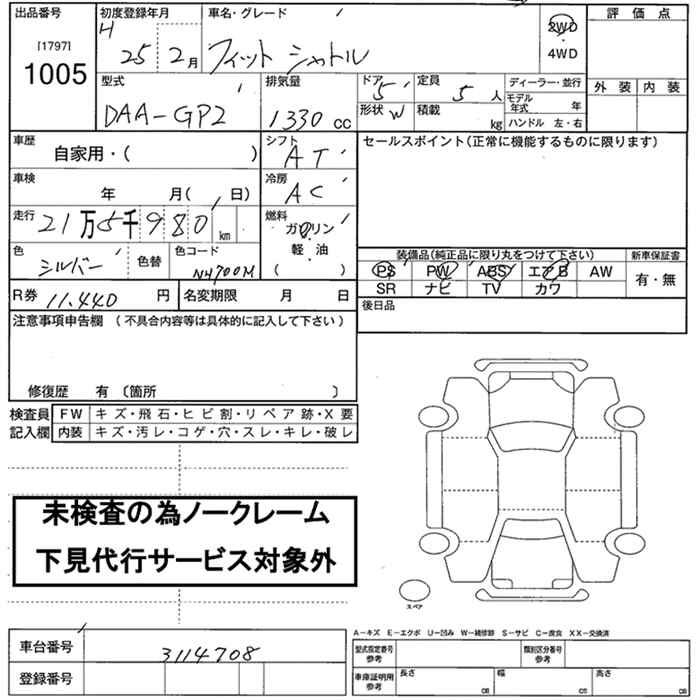 出品番号 初度登録年月 車名・グレード 評価点
[1797] H 2WD
1005 25 2月 フィット シャトル ・
4WD
型式 排気量 ドア 5 定員 5 人 ディーラー・並行 外装 内装
DAA-GP2 1330 cc 形状 W 積載 kg モデル年式 年
ハンドル 左・右
車歴 シフト セールスポイント(正常に機能するものに限ります)
自家用・( ) AT
車検 冷房
年 月( 日) AC
走行 燃料
21万5千980 km ガソリン
・
色 色替 色コード 軽・油 装備品(純正品に限り丸をつけて下さい) 新車保証書
シルバー NH700M ( ) PS PW ABS エアB AW 有・無
R券 11,440 円 名変期限 月 日 SR ナビ TV カワ
注意事項申告欄 (不具合内容等は具体的に記入して下さい) 後日品
修復歴 有〔箇所 〕
検査員 FW キズ・飛石・ヒビ割・リペア跡・X要
記入欄 内装 キズ・汚レ・コゲ・穴・スレ・キレ・破レ
未検査の為ノークレーム
下見代行サービス対象外
スペア
A-キズ E-エクボ U-凹み W-補修跡 S-サビ C-腐食 XX-交換済
車台番号 3114708 型式指定番号 参考 類別区分番号 参考
登録番号 車庫証明用 参考 長さ cm 幅 cm 高さ cm